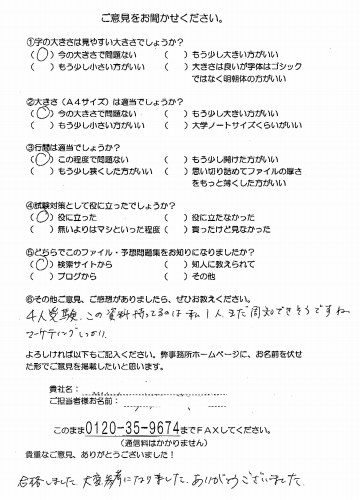 ご意見をお聞かせください。
①字の大きさは見やすい大きさでしょうか？
(○) 今の大きさで問題ない ( ) もう少し大きい方がいい
( ) もう少し小さい方がいい ( ) 大きさは良いが字体はゴシック
ではなく明朝体の方がいい
②大きさ（Ａ４サイズ）は適当でしょうか？
(○) 今の大きさで問題ない ( ) もう少し大きい方がいい
( ) もう少し小さい方がいい ( ) 大学ノートサイズくらいがいい
③行間は適当でしょうか？
(○) この程度で問題ない ( ) もう少し開けた方がいい
( ) もう少し狭くした方がいい ( ) 思い切り詰めてファイルの厚さ
をもっと薄くした方がいい
④試験対策として役に立ったでしょうか？
(○) 役に立った ( ) 役に立たなかった
( ) 無いよりはマシといった程度 ( ) 買ったけど見なかった
⑤どちらでこのファイル・予想問題集をお知りになりましたか？
(○) 検索サイトから ( ) 知人に教えられて
( ) ブログから ( ) その他
⑥その他ご意見、ご感想がありましたら、ぜひお教えください。
4人受験、この資料持ってるのは私1人 まだ周知できそうですね
マーケティングしっかり。
よろしければ以下もご記入ください。弊事務所ホームページに、お名前を伏せ
た形でご意見を掲載したいと思います。
貴社名：
ご担当者様お名前：
このまま0120-35-9674までＦＡＸしてください。
（通信料はかかりません）
貴重なご意見、ありがとうございました！
合格しました。大変参考になりました。ありがとうございました。